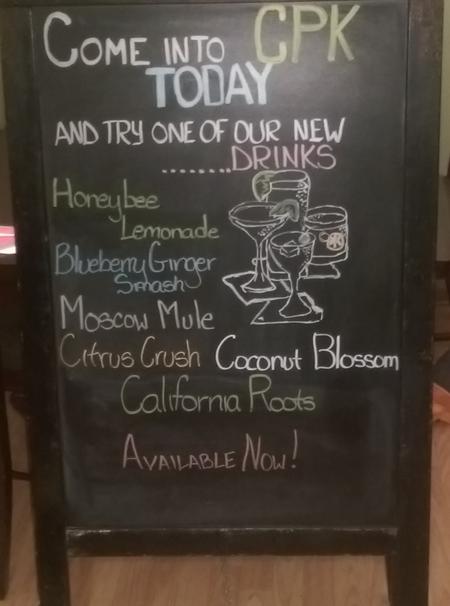 COME INTO CPK
TODAY
AND TRY ONE OF OUR NEW
........DRINKS
Honeybee
Lemonade
Blueberry Ginger
Smash
Moscow Mule
Citrus Crush Coconut Blossom
California Roots
AVAILABLE NOW!